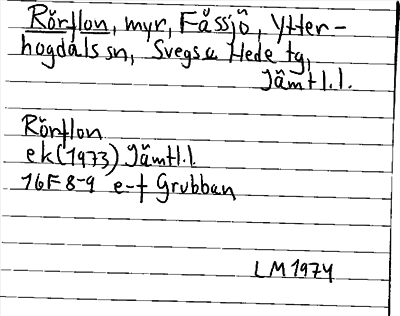 Rörflon, myr, Fåssjö, Ytter-
hogdals sn, Svegs o Hede tg,
Jämtl.l.
Rörflon
ek (1973) Jämtl.l.
16F 8-9 e-f Grubban
LM 1974